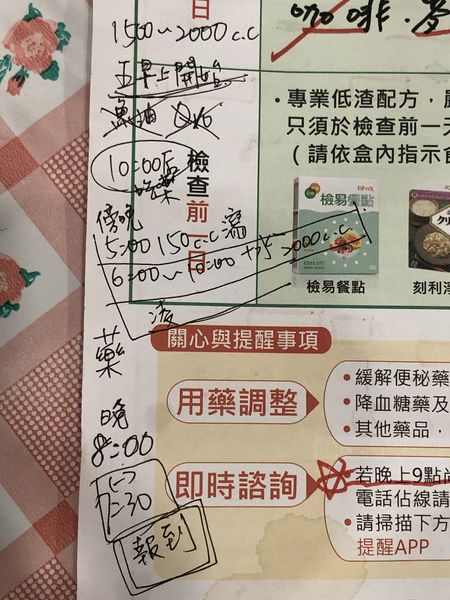 日
1500~2000c.c
五早上開始
魚油
10:00后
吃藥
檢查前一日
傍晚
5:00 150c.c 瀉
6:00~10:00 + 水 2000c.c
清
藥
晚
8:00
1:30
報到
咖啡.
・專業低渣配方,
只須於檢查前一天
(請依盒內指示食
檢易餐點
檢易餐點
刻利淨
關心與提醒事項
用藥調整
・緩解便秘藥
・降血糖藥及
・其他藥品,
即時諮詢
若晚上9點尚
電話佔線請
・請掃描下方
提醒APP